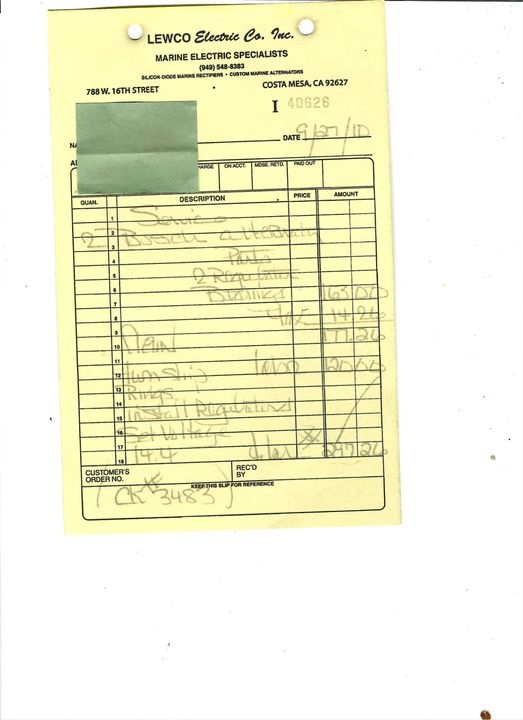 LEWCO Electric Co. Inc.
MARINE ELECTRIC SPECIALISTS
(949) 548-8383
SILICON-DIODE MARINE RECTIFIERS • CUSTOM MARINE ALTERNATORS
788 W. 16TH STREET COSTA MESA, CA 92627
I 40626
DATE 9/27/10
ON ACCT. MDSE. RETD. PAID OUT
QUAN. DESCRIPTION PRICE AMOUNT
1 Service
2 2 Bosch alternator
3
4 Parts
5 2 Regulator
6 Bushings 163 00
7
8 Tax 14 26
9 177.26
10 Clean
11 labor 120 00
12 turn slip
13 Rings
14
15 install Regulators
16 Set Voltage
17 14.4 297 26
18
CUSTOMER'S ORDER NO. REC'D BY
KEEP THIS SLIP FOR REFERENCE
(CK# 3483)